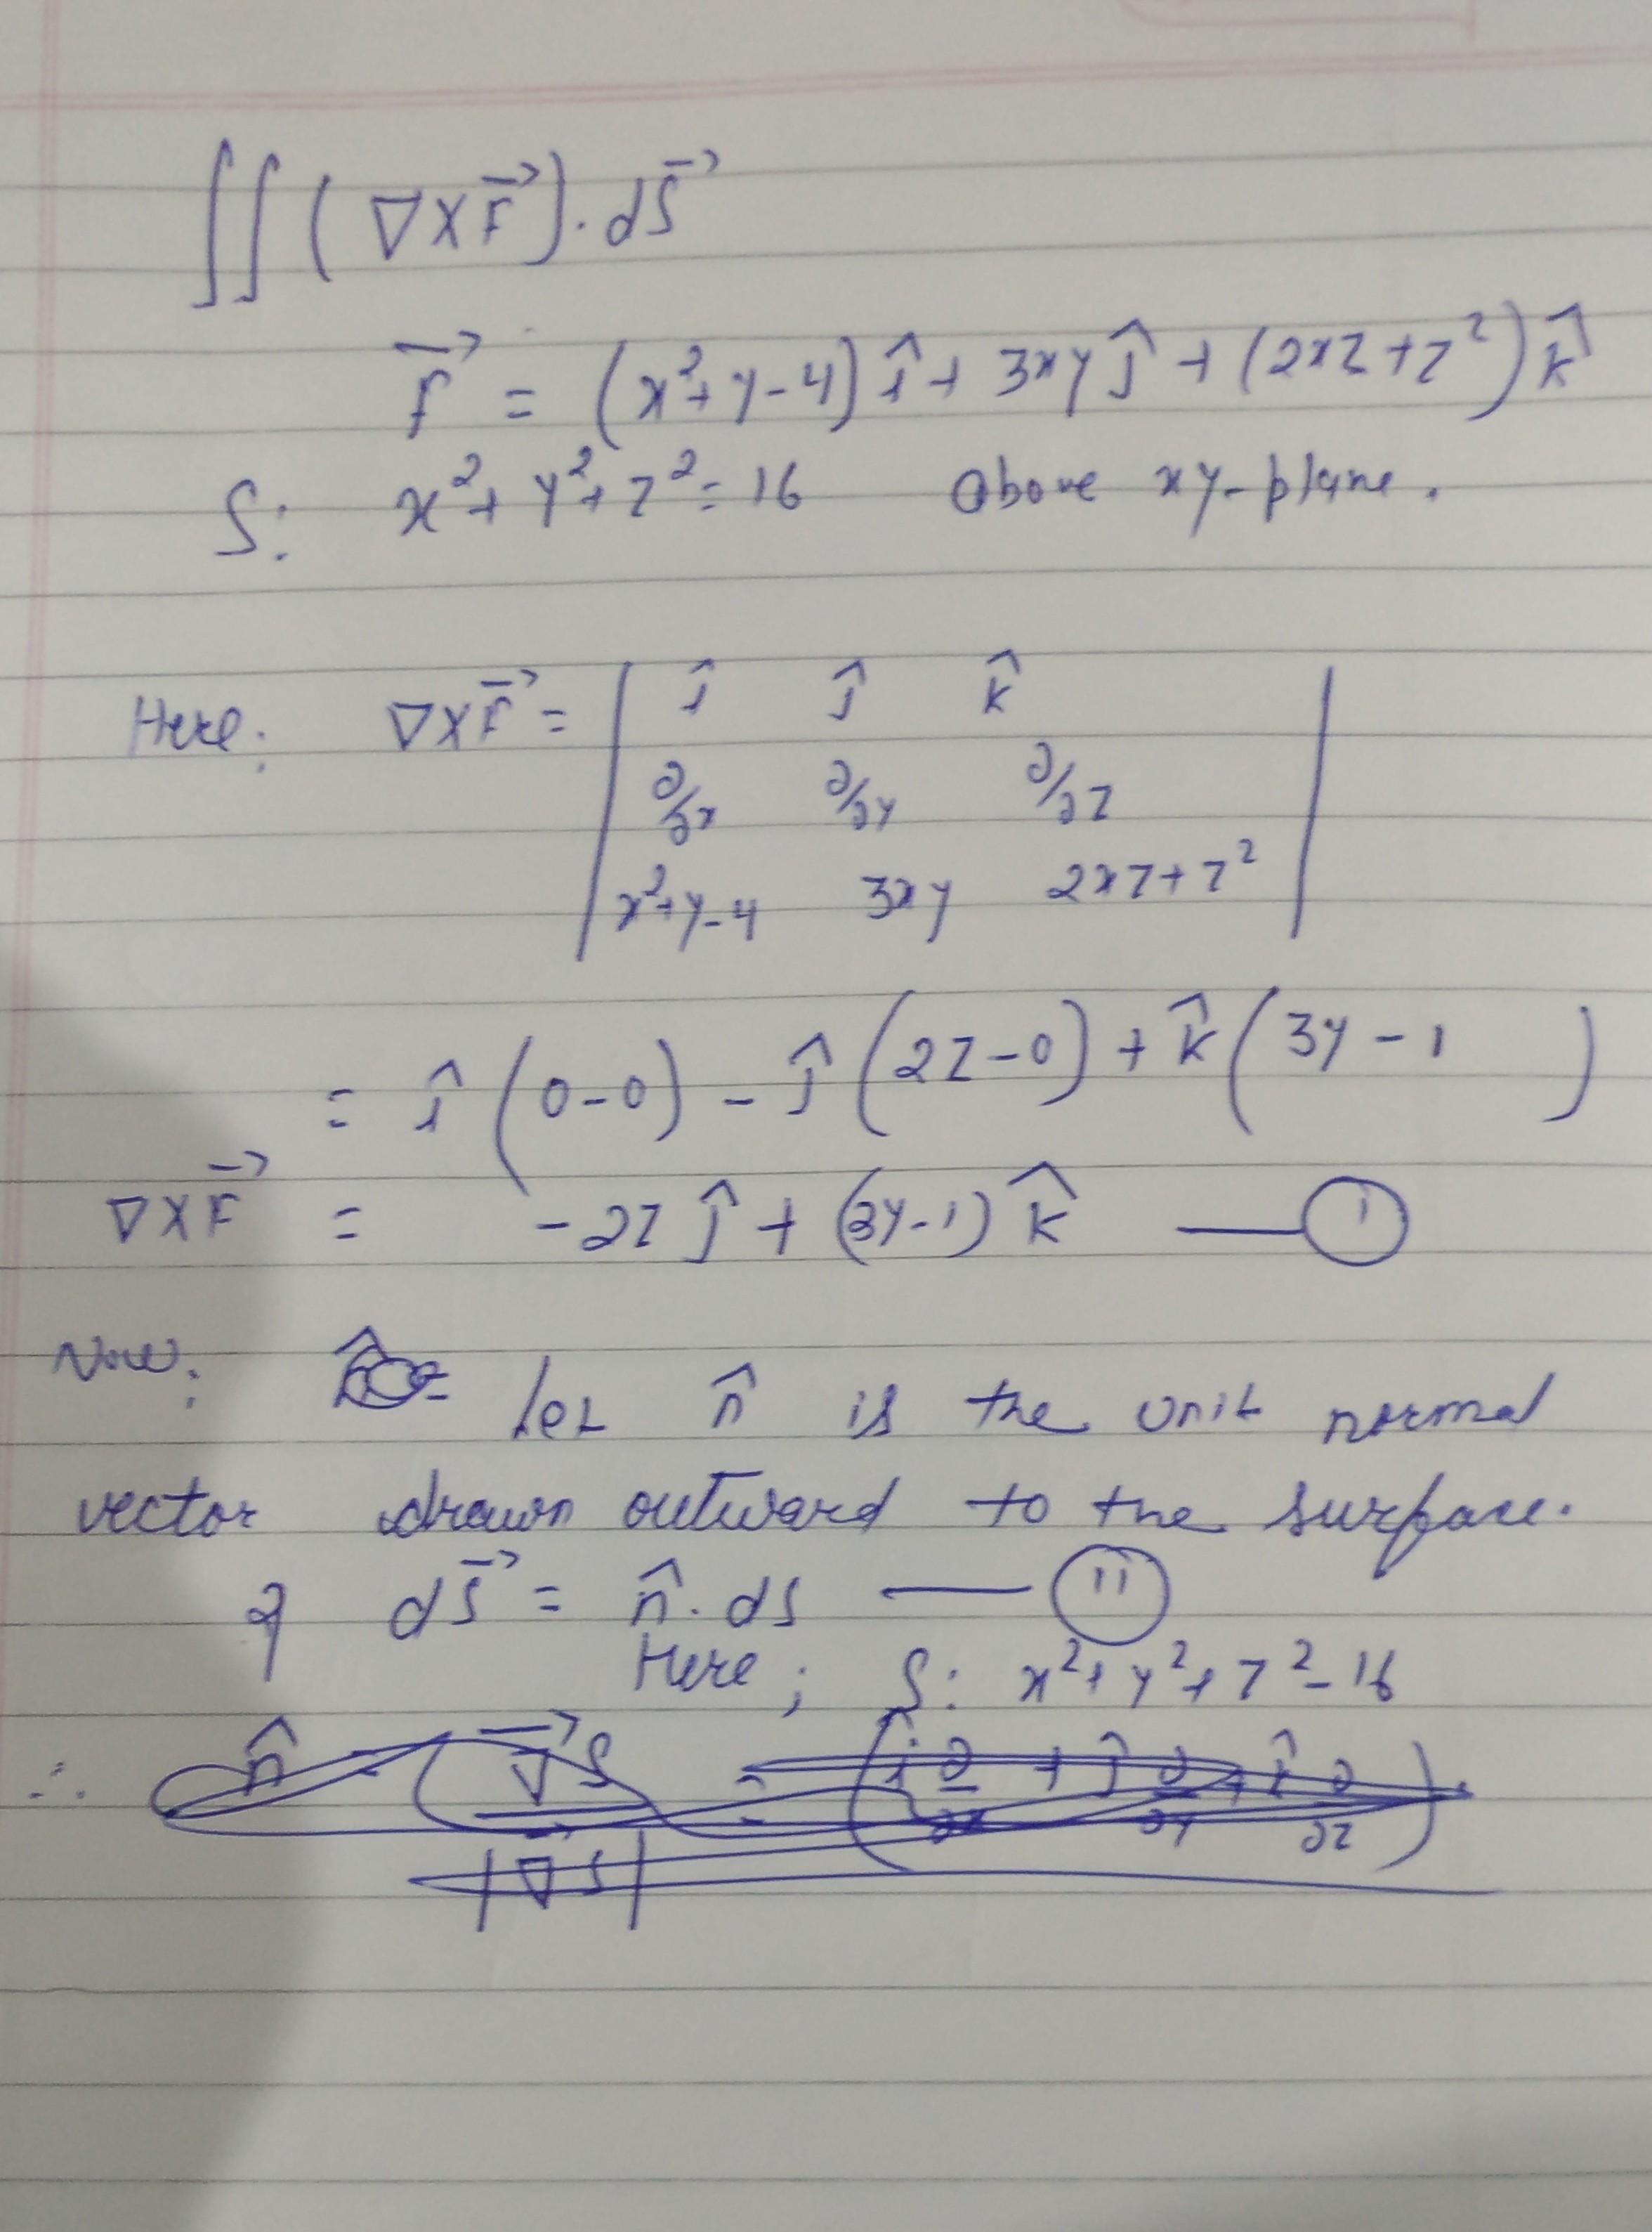 ∬ (∇×F⃗)·dS⃗
F⃗ = (x²+y-4) î + 3xy ĵ + (2xz+z²) k̂
S: x²+y²+z²=16 above xy-plane.
Here; ∇×F⃗ = | î ĵ k̂ |
∂/∂x ∂/∂y ∂/∂z
x²+y-4 3xy 2xz+z²
= î (0-0) - ĵ (2z-0) + k̂ (3y-1 )
∇×F⃗ = -2z ĵ + (3y-1) k̂ — (i)
Now; let n̂ is the unit normal
vector drawn outward to the surface.
dS⃗ = n̂.ds — (ii)
Here; S: x²+y²+z²-16
∴ n̂ = ∇⃗S = (î ∂/∂x + ĵ ∂/∂y + k̂ ∂/∂z)
|∇⃗S|